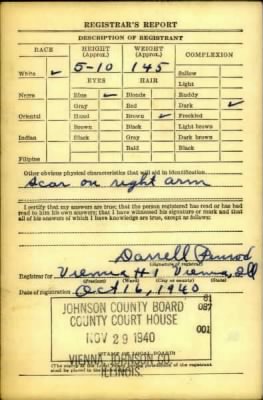 REGISTRAR'S REPORT
DESCRIPTION OF REGISTRANT
RACE HEIGHT (Approx.) WEIGHT (Approx.) COMPLEXION
White ✓ 5-10 145 Sallow
EYES HAIR Light
Negro Blue ✓ Blonde Ruddy
Gray Red Dark ✓
Oriental Hazel Brown ✓ Freckled
Brown Black Light brown
Indian Black Gray Dark brown
Bald Black
Filipino
Other obvious physical characteristics that will aid in identification
Scar on right arm
I certify that my answers are true; that the person registered has read or has had
read to him his own answers; that I have witnessed his signature or mark and that
all of his answers of which I have knowledge are true, except as follows:
Darrell Penrod
(Signature of registrar)
Registrar for Vienna #1 Vienna, Ill
(Precinct) (Ward) (City or county) (State)
Date of registration Oct 16, 1940
JOHNSON COUNTY BOARD 087
COUNTY COURT HOUSE
001
NOV 29 1940
STAMP OF LOCAL BOARD
VIENNA, JOHNSON CO.
ILLINOIS.